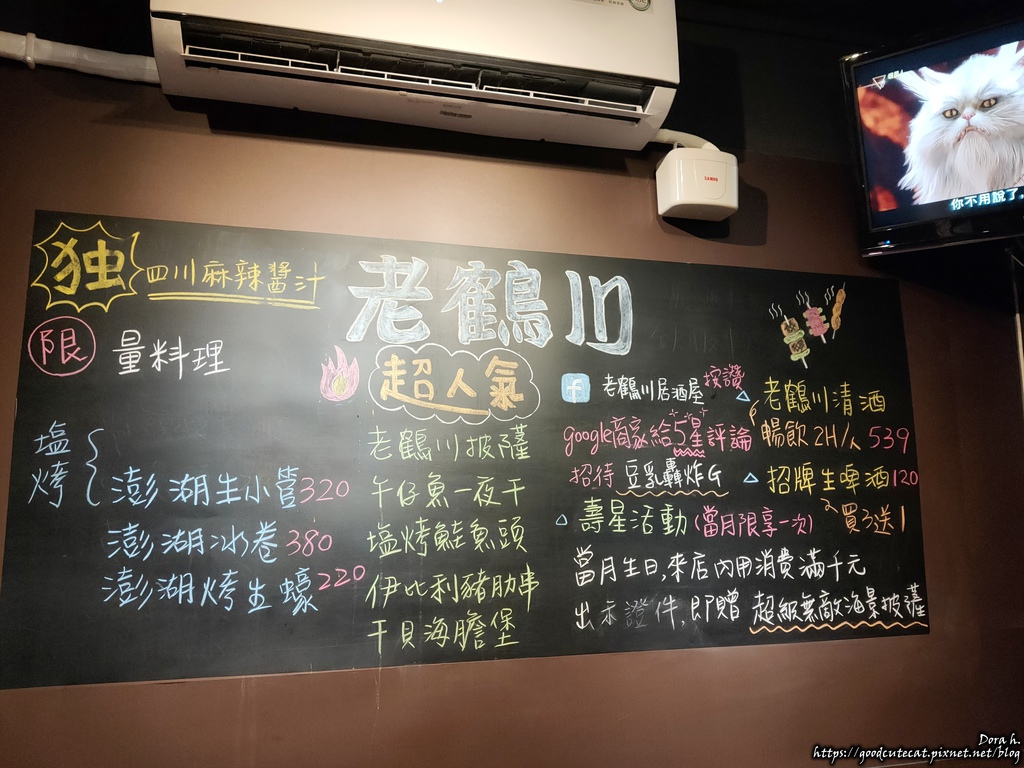 独 四川麻辣醬汁
限 量料理
塩烤
澎湖生小管320
澎湖冰卷380
澎湖烤生蠔220
老鶴川
超人氣
老鶴川披薩
午仔魚一夜干
塩烤鮭魚頭
伊比利豬肋串
干貝海膽堡
f 老鶴川居酒屋 按讚
google商家給5星評論
招待 豆乳轟炸G
壽星活動(當月限享一次)
當月生日,來店內用消費滿千元
出示證件,即贈 超級無敵海景披薩
老鶴川清酒
暢飲2H/人 539
招牌生啤酒120
買3送1
SAMPO
你不用說了
Dora h.
https://goodcutecat.pixnet.net/blog